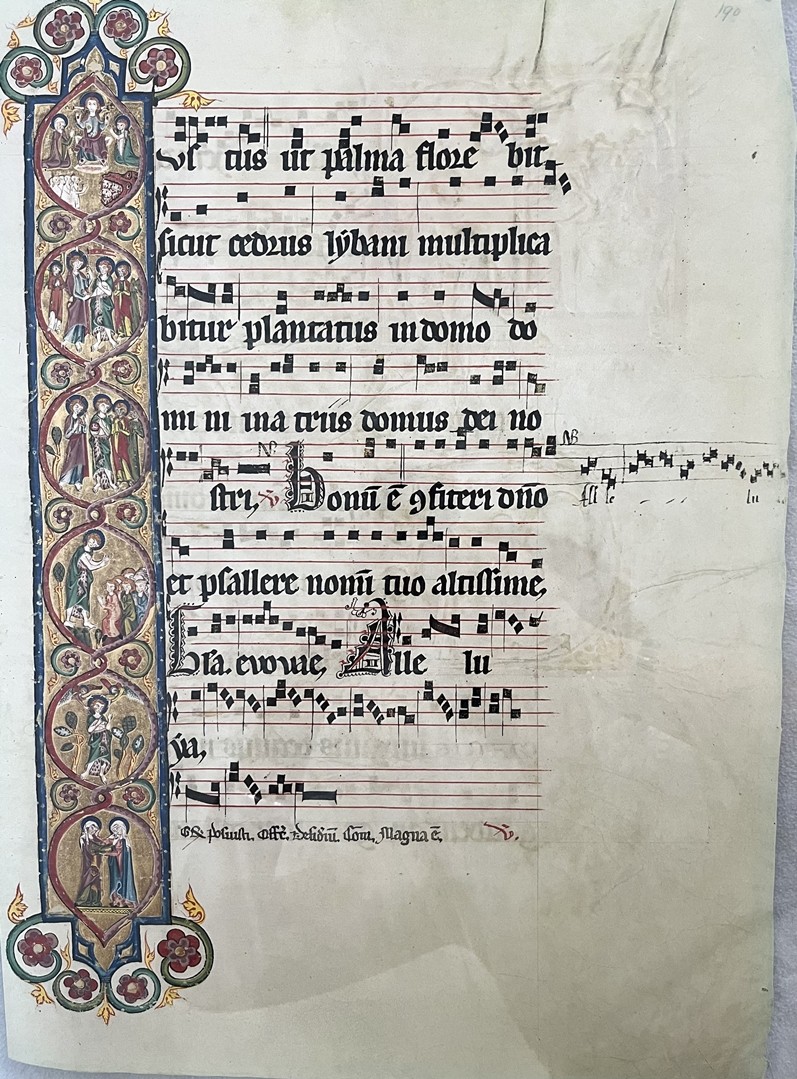 190
vſ tus ut palma flore bit
ſicut cedrus lẏbani multiplica
bitur plantatus in domo do
mi ni in a triis domus dei no
ſtri, v̄ Bonū ē ꝯfiteri dn̄o
Alle lu
et pſallere nomī tuo altiſſime,
Gľa. evovae, Alle lu
ẏa,
Gͬ Poſuiſti. Offē. Deſidiū. Com̄. Magna ē. v̄.